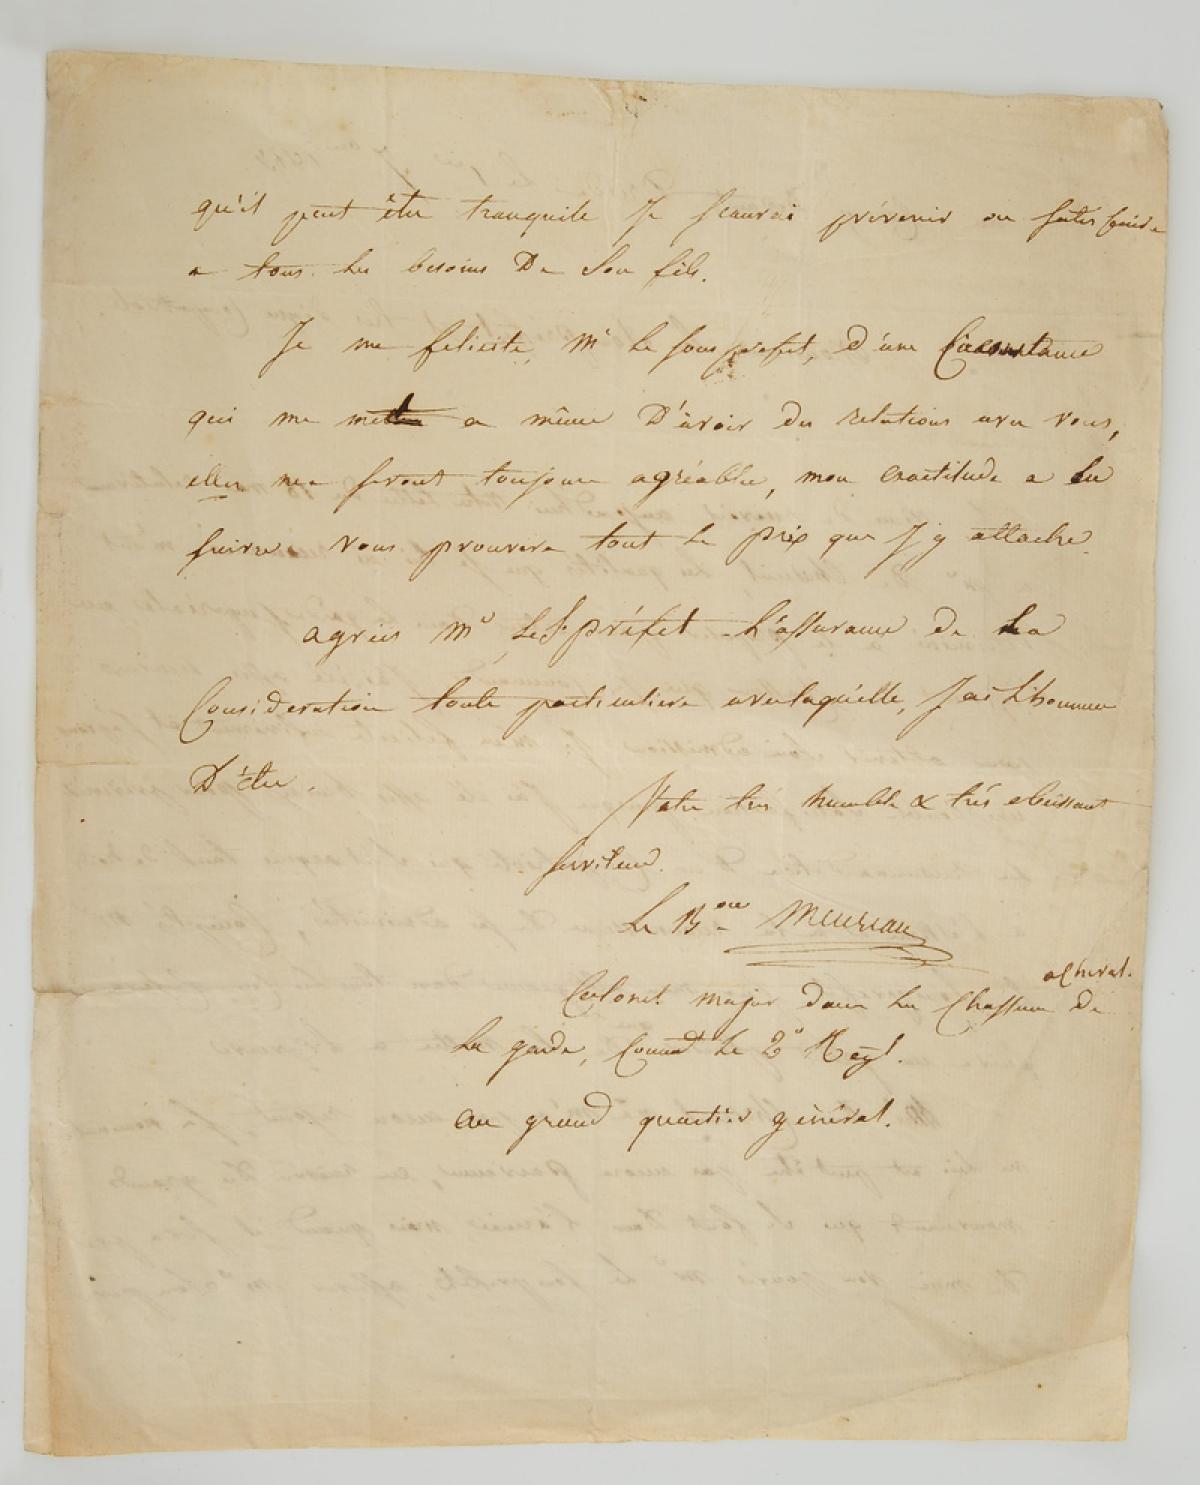 qu'il peut être tranquile Je scaurai prévenir ou satisfaire
a tous les besoins De Son fils.
Je me felicite, Mr le sous prefet, d'une Circonstance
qui me met a même D'avoir des relations avec vous,
elles me seront toujours agréables, mon exactitude a les
suivre vous prouvera tout le prix que J'y attache.
agrées Mr le S. préfet l'assurance de la
Consideration toute particuliere avec laquelle, J'ai L'honneur
D'être.
Votre très humble & très obéissant
serviteur.
Le Bon Meuziau
Colonel major dans les Chasseurs a Cheval. De
La garde, Commdt Le 2e Regt.
au grand quartier général.